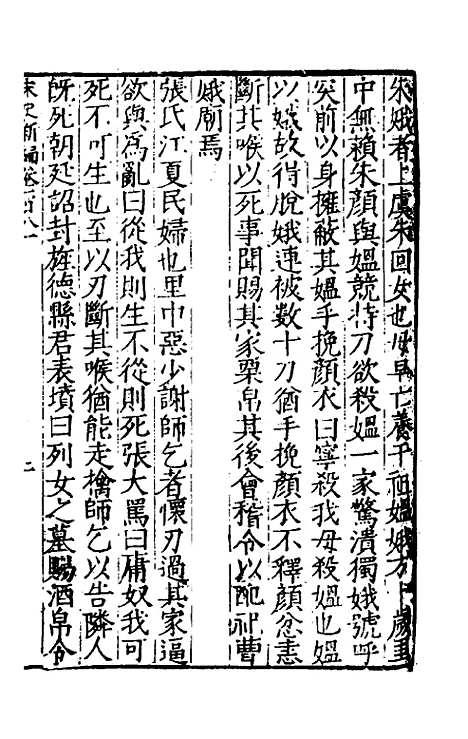 朱娥者上虞朱回女也母早亡養于祖媼娥方十歲里
中無賴朱顏與媼競持刀欲殺媼一家驚潰獨娥號呼
突前以身擁蔽其媼手挽顏衣曰寧殺我毋殺媼也媼
以娥故得脫娥連被數十刀猶手挽顏衣不釋顏忿恚
斷其喉以死事聞賜其家粟帛其後會稽令以配祀曹
娥廟焉
張氏江夏民婦也里中惡少謝師乞者懷刃過其家逼
欲與爲亂曰從我則生不從則死張大罵曰庸奴我可
死不可生也至以刃斷其喉猶能走擒師乞以告隣人
旣死朝廷詔封旌德縣君表墳曰列女之墓賜酒帛令
宋史新編卷一百八一
二